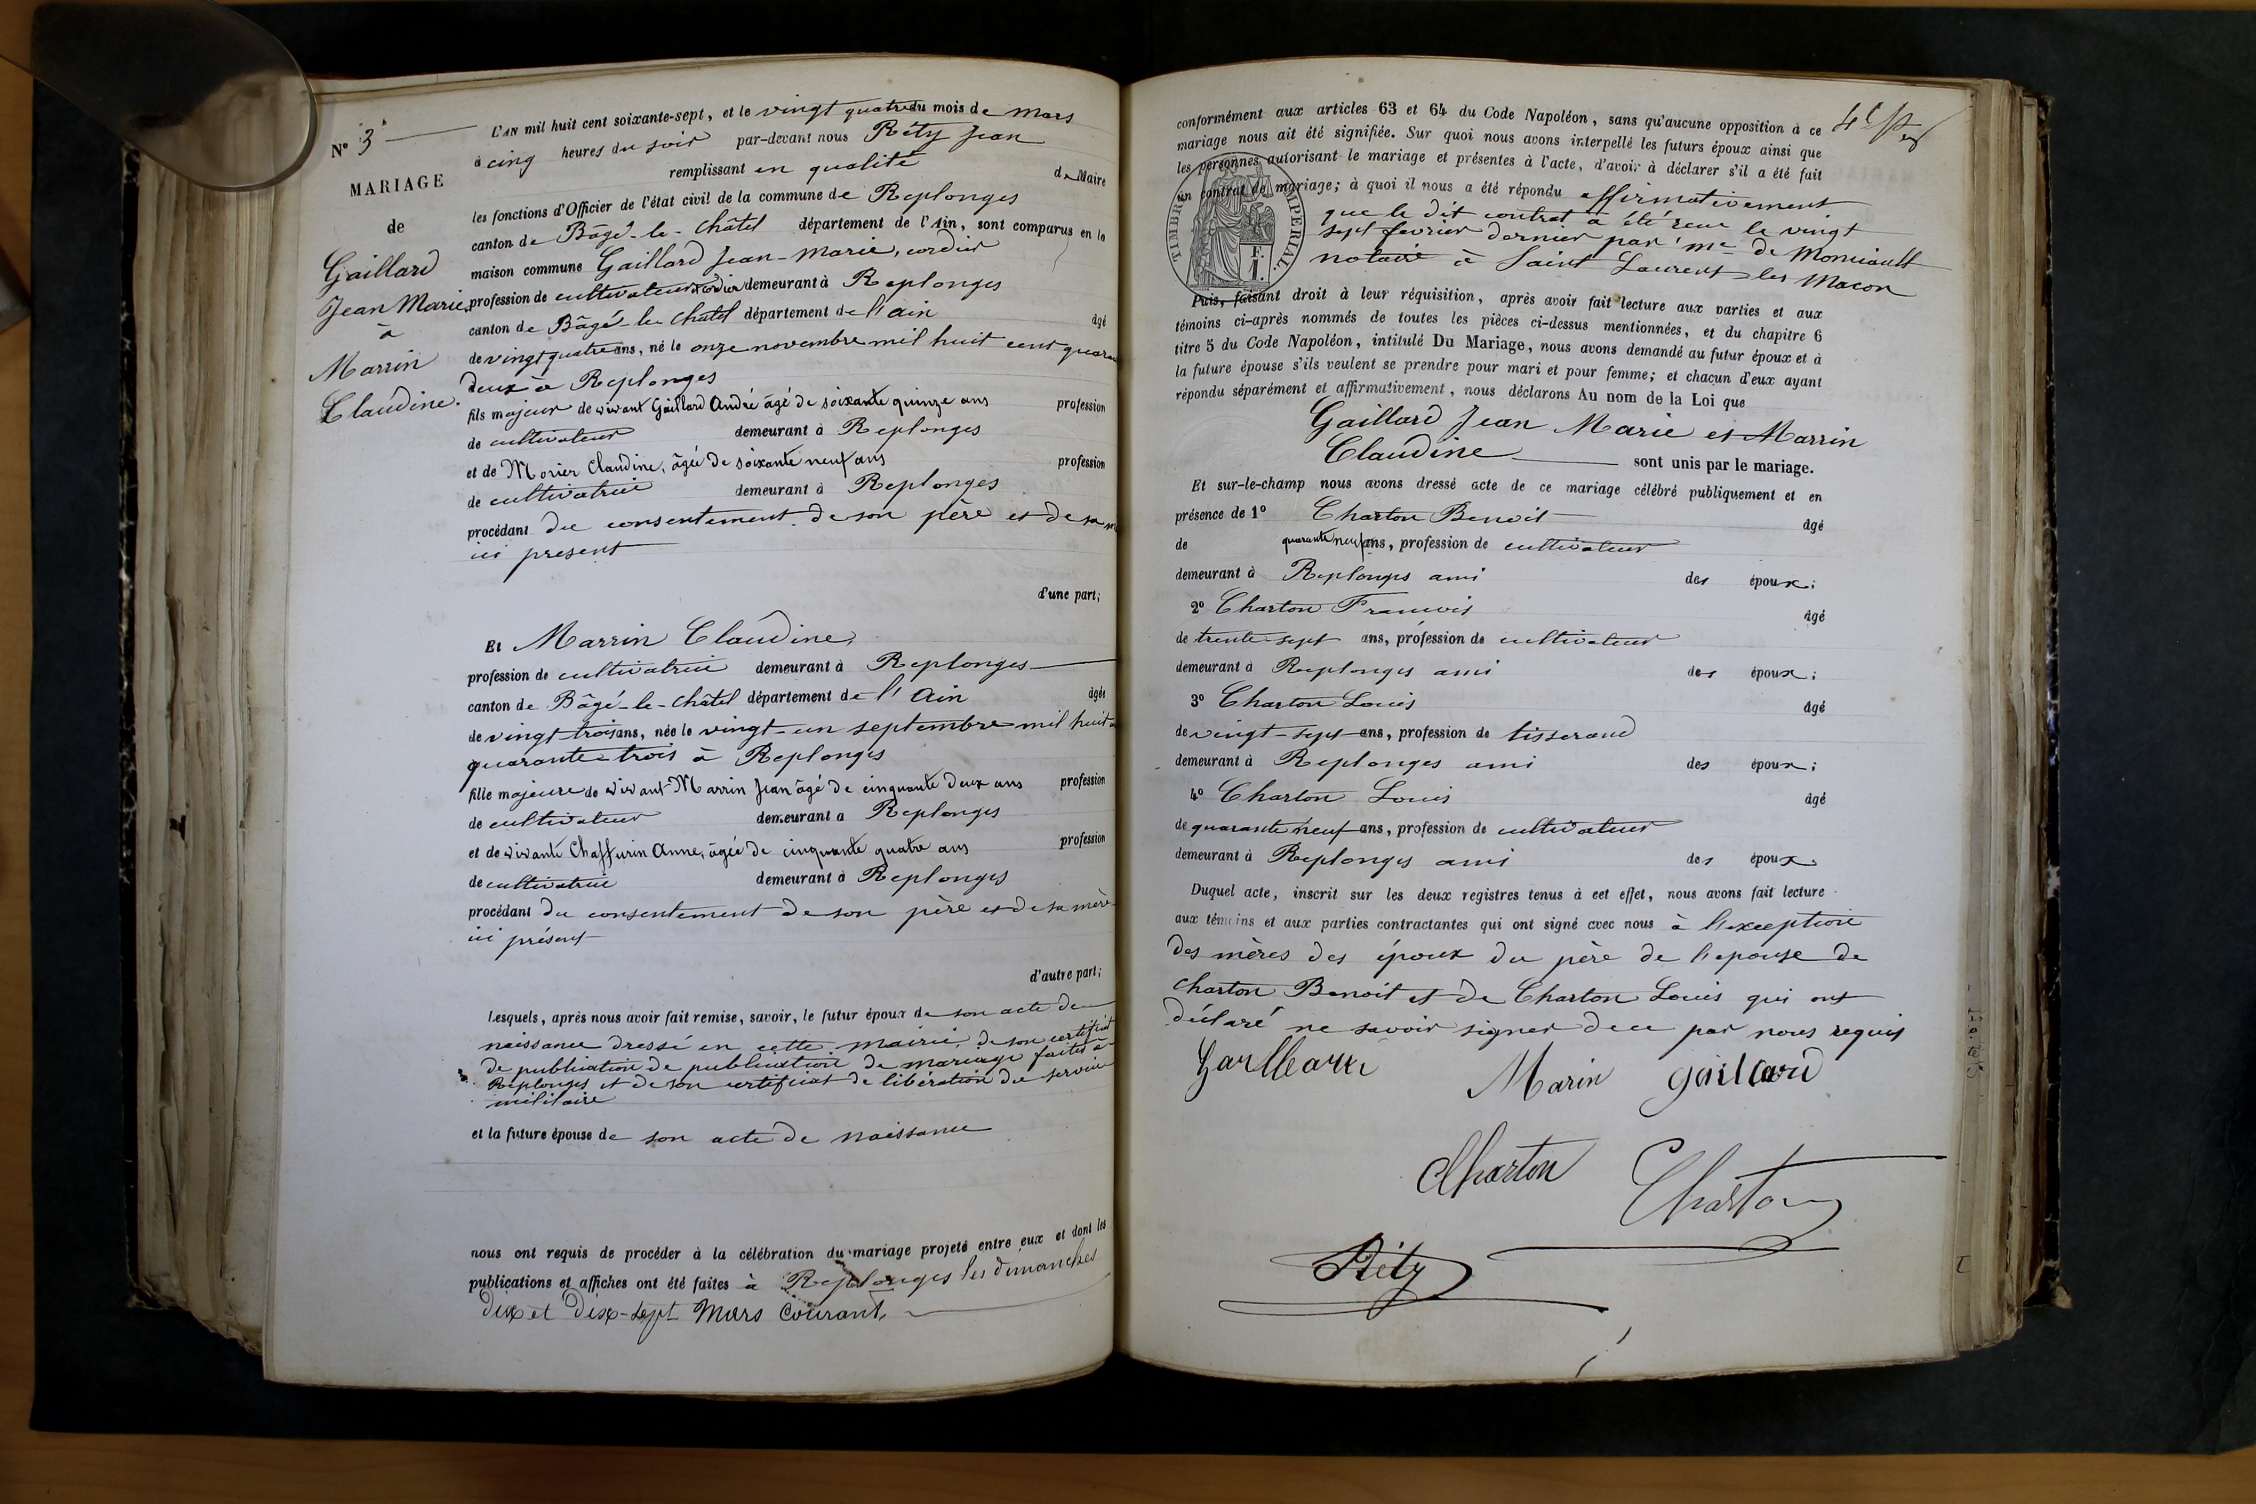 N° 3
MARIAGE
de
Gaillard
Jean Marie
à
Marrin
Claudine.
L'AN mil huit cent soixante-sept, et le vingt quatre du mois de mars
à cinq heures du soir par-devant nous Réty Jean
remplissant en qualité de Maire
les fonctions d'Officier de l'état civil de la commune de Replonges
canton de Bâgé-le-Châtel département de l'Ain, sont comparus en la
maison commune Gaillard Jean-Marie, cordier
profession de cultivateur cordier demeurant à Replonges
canton de Bâgé-le-Châtel département de l'ain âgé
de vingt quatre ans, né le onze novembre mil huit cent quaran
deux à Replonges
fils majeur de vivant Gaillard André âgé de soixante quinze ans profession
de cultivateur demeurant à Replonges
et de Morier Claudine, âgée de soixante neuf ans profession
de cultivatrice demeurant à Replonges
procédant du consentement de son père et de sa m
ici present
d'une part;
Et Marrin Claudine,
profession de cultivatrice demeurant à Replonges
canton de Bâgé-le-Châtel département de l'Ain âgée
de vingt trois ans, née le vingt-un septembre mil huit c
quarante-trois à Replonges
fille majeure de vivant Marrin Jean âgé de cinquante deux ans profession
de cultivateur demeurant à Replonges
et de vivante Chaffurin Anne, âgée de cinquante quatre ans profession
de cultivatrice demeurant à Replonges
procédant du consentement de son père et de sa mère
ici présent
d'autre part;
Lesquels, après nous avoir fait remise, savoir, le futur époux de son acte de
naissance dressé en cette mairie, de son certificat
de publication de publication de mariage faites à
Replonges et de son certificat de libération du service
militaire
et la future épouse de son acte de naissance
nous ont requis de procéder à la célébration du mariage projeté entre eux et dont les
publications et affiches ont été faites à Replonges les dimanches
dix et dix-sept Mars courant,
conformément aux articles 63 et 64 du Code Napoléon, sans qu'aucune opposition à ce
mariage nous ait été signifiée. Sur quoi nous avons interpellé les futurs époux ainsi que
les personnes autorisant le mariage et présentes à l'acte, d'avoir à déclarer s'il a été fait
un contrat de mariage; à quoi il nous a été répondu affirmativement
que le dit contrat a été reçu le vingt
sept février dernier par me de Monciault
notaire à Saint Laurent les Macon
TIMBRE IMPERIAL.
Puis, faisant droit à leur réquisition, après avoir fait lecture aux parties et aux
témoins ci-après nommés de toutes les pièces ci-dessus mentionnées, et du chapitre 6
titre 5 du Code Napoléon, intitulé Du Mariage, nous avons demandé au futur époux et à
la future épouse s'ils veulent se prendre pour mari et pour femme; et chacun d'eux ayant
répondu séparément et affirmativement, nous déclarons Au nom de la Loi que
Gaillard Jean Marie et Marrin
Claudine sont unis par le mariage.
Et sur-le-champ nous avons dressé acte de ce mariage célébré publiquement et en
présence de 1° Charton Benoit âgé
de quarante neuf ans, profession de cultivateur
demeurant à Replonges ami des époux;
2° Charton Francois âgé
de trente-sept ans, profession de cultivateur
demeurant à Replonges ami des époux;
3° Charton Louis âgé
de vingt-sept ans, profession de tisserand
demeurant à Replonges ami des époux;
4° Charton Louis âgé
de quarante neuf ans, profession de cultivateur
demeurant à Replonges ami des époux.
Duquel acte, inscrit sur les deux registres tenus à cet effet, nous avons fait lecture
aux témoins et aux parties contractantes qui ont signé avec nous à l'exception
des mères des époux du père de l'epouse de
Charton Benoit et de Charton Louis qui ont
déclaré ne savoir signer de ce par nous requis
Marin gaillard
Charton Charton
Réty